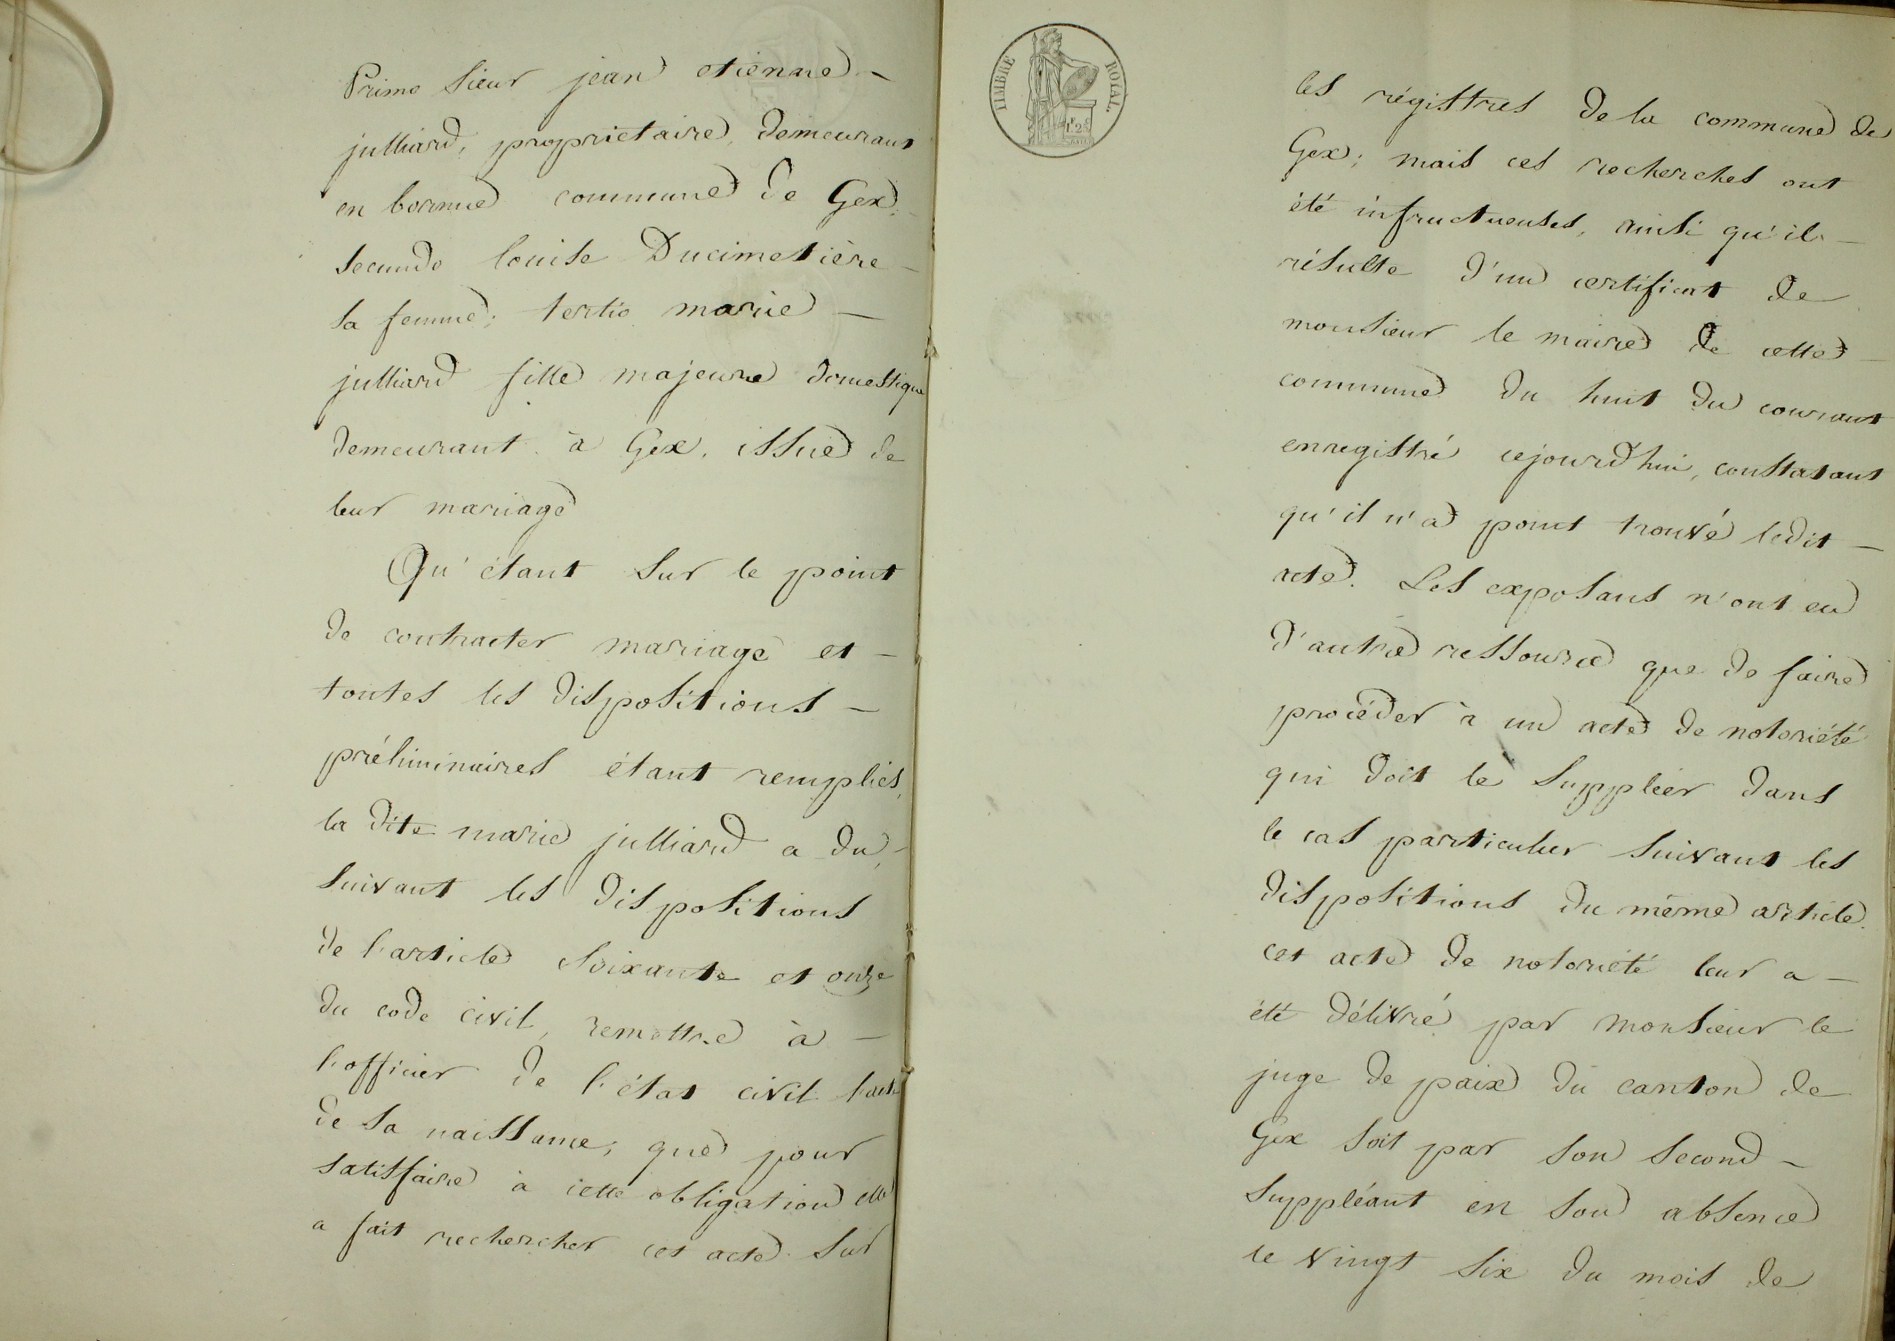 Primo Sieur jean etienne —
julliard, propriétaire, demeurant
en bornue commune de Gex,
secundo louise Ducimetière —
sa femme; tertio marie —
julliard fille majeure domestique
demeurant à Gex, issue de
leur mariage
Qu'étant sur le point
de contracter mariage et —
toutes les dispositions —
préliminaires étant remplies,
la dite marie julliard a du,
suivant les dispositions
de l'article soixante et onze
du code civil, remettre à —
l'officier de l'état civil l'acte
de sa naissance; que pour
satisfaire à cette obligation elle
a fait rechercher cet acte sur
TIMBRE ROYAL.
les régistres de la commune de
Gex; mais ces recherches ont
été infructueuses, ainsi qu'il —
résulte d'un certificat de
monsieur le maire de cette —
commune du huit du courant
enregistré cejourd'hui, constatant
qu'il n'a point trouvé ledit —
acte. Les exposans n'ont eu
d'autre ressource que de faire
procéder à un acte de notoriété
qui doit le suppléer dans
le cas particulier suivant les
dispositions du même article.
cet acte de notoriété leur a —
été délivré par monsieur le
juge de paix du canton de
Gex soit par son second —
suppléant en son absence
le vingt six du mois de